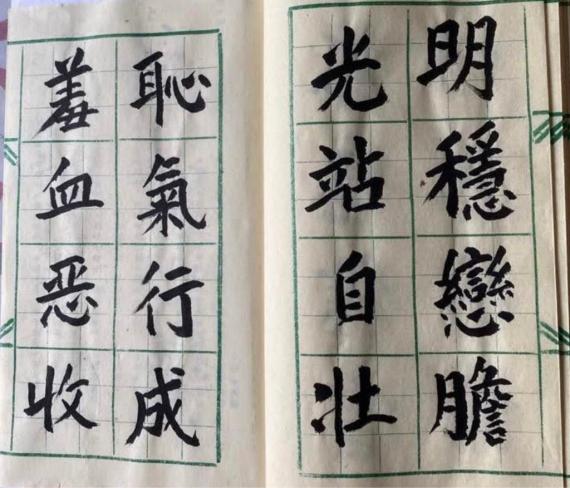 明穩戀膽
光站自壯
恥氣行成
羞血恶收